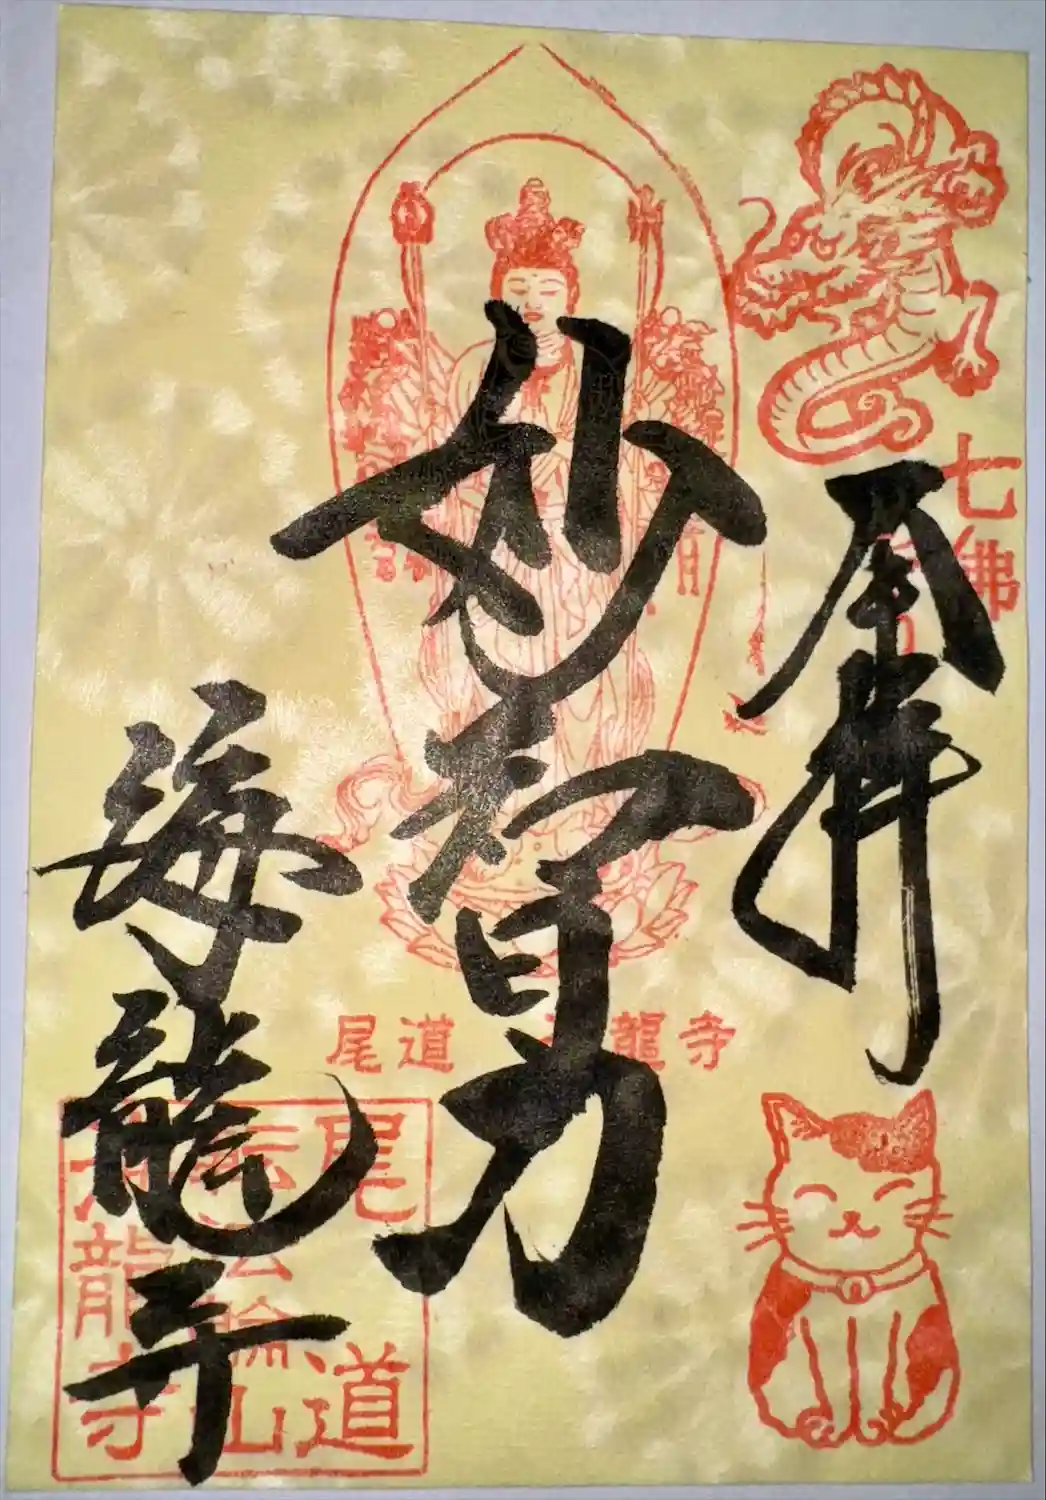 奉拝
七佛
妙智力
海龍寺
尾道 龍寺
尾道
転法輪山
海龍寺